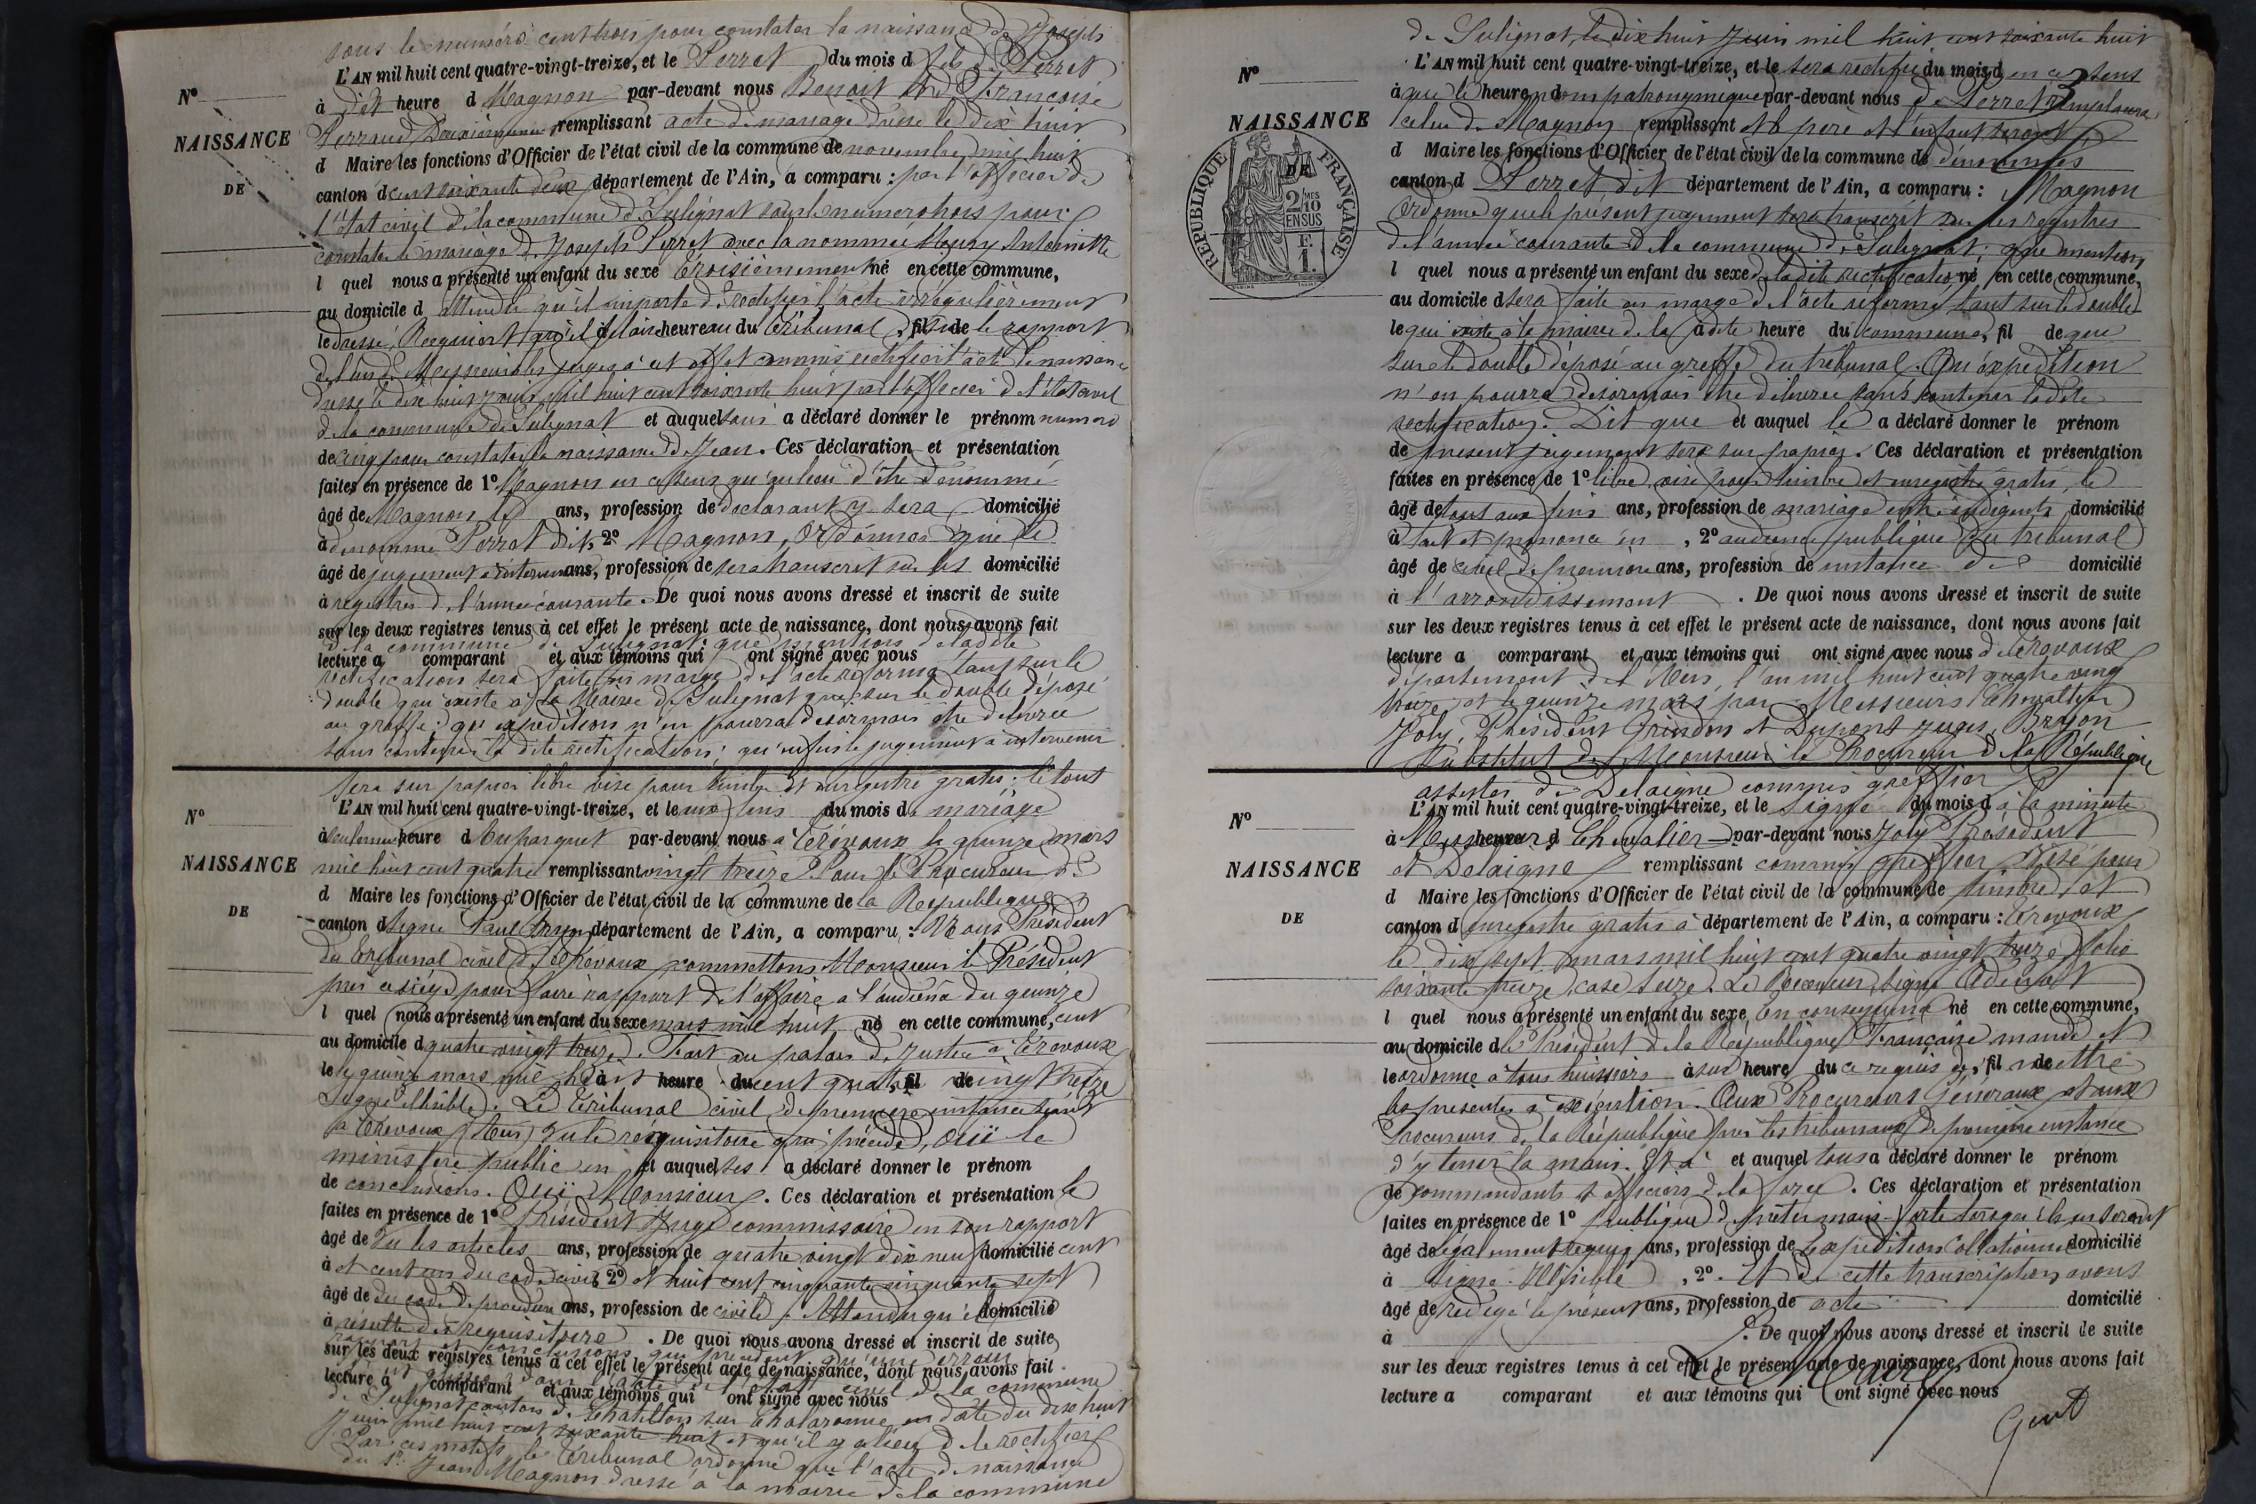 sous le numéro cent trois pour constater la naissance de Joseph
L'AN mil huit cent quatre-vingt-treize, et le Perret du mois d fils de Perret
N°
à dit heure d Magnon par-devant nous Benoit et de Françoise
NAISSANCE
Perraud Deuxièmement remplissant acte de mariage dressé le dix huit
d Maire les fonctions d'Officier de l'état civil de la commune de novembre mil huit
DE
canton d cent soixante deux département de l'Ain, a comparu : par l'officier de
l'état civil de la commune de Sulignat sous le numéro trois pour
constater le mariage de Joseph Perret avec la nommée Antoinette
l quel nous a présenté un enfant du sexe Troisièmement né en cette commune,
au domicile d attendu qu'il importe de rectifier l'acte irrégulièrement
le dressé, Requiert qu'il à plaise heure au du Tribunal, fil de le rapport
de l'un de Messieurs les juges à cet effet commis rectifier l'acte de naissance
dressé le dix huit juin mil huit cent soixante huit par l'officier de l'état civil
de la commune de Sulignat et auquel sous a déclaré donner le prénom numéro
de cinq pour constater la naissance de Jean. Ces déclaration et présentation
faites en présence de 1° Magnon en ce sens qu'au lieu d'être dénommé
âgé de Magnon le ans, profession de déclarant y sera domicilié
à dénommé Perret dit, 2° Magnon, Ordonner que le
âgé de jugement à intervenir ans, profession de sera transcrit sur les domicilié
à registres de l'année courante. De quoi nous avons dressé et inscrit de suite
sur les deux registres tenus à cet effet le présent acte de naissance, dont nous avons fait
de la commune de Sulignat; que mention de la dite
lecture a comparant et aux témoins qui ont signé avec nous
rectification sera faite en marge de l'acte réformé tant sur le
double qui existe à la Mairie de Sulignat que sur le double déposé
au greffe; qu'expédition n'en pourra désormais être délivrée
sans contenir la dite rectification; qu'enfin le jugement à intervenir
sera sur papier libre visé pour timbre et enregistré gratis; le tout
L'AN mil huit cent quatre-vingt-treize, et le aux fins du mois d de mariage
N°
à seulement heure d Au parquet par-devant nous à Trévoux le quinze mars
NAISSANCE
mil huit cent quatre remplissant vingt treize. Pour le Procureur de
d Maire les fonctions d'Officier de l'état civil de la commune de la République
DE
canton d signé Paul Bryon département de l'Ain, a comparu : Nous Président
du Tribunal civil de Trévoux commettons Monsieur le Président
près ce siège pour faire rapport de l'affaire à l'audience du quinze
l quel nous a présenté un enfant du sexe mars mil huit né en cette commune, cent
au domicile d quatre vingt treize. Fait au palais de justice à Trévoux
le le quinze mars mil huit à heure du cent quatre, fil de vingt treize
Signé illisible. Le Tribunal civil de première instance séant
à Trévoux (Ain) Vu le réquisitoire qui précède, Ouï le
ministère public en et auquel ses a déclaré donner le prénom
de conclusions. Ouï Monsieur. Ces déclaration et présentation le
faites en présence de 1° Président Juge commissaire en son rapport
âgé de Vu les articles ans, profession de quatre vingt dix neuf domicilié cent
à et cent un du code civil 2° et huit cent cinquante cinquante sept
âgé de du code de procédure ans, profession de civile; Attendu qu'il domicilié
à résulte des réquisitoire. De quoi nous avons dressé et inscrit de suite
rapport et conclusions qui précèdent qu'une erreur
sur les deux registres tenus à cet effet le présent acte de naissance, dont nous avons fait
dans l'acte de l'état civil de la commune
lecture a comparant et aux témoins qui ont signé avec nous
de Sulignat canton de Chatillon sur Chalaronne en date du dix huit
Juin mil huit cent soixante huit et qu'il y a lieu de le rectifier
Par ces motifs le Tribunal ordonne que l'acte de naissance
du Sr Jean Magnon dressé à la mairie de la commune
de Sulignat, le dix huit Juin mil huit cent soixante huit
L'AN mil huit cent quatre-vingt-treize, et le sera rectifié du mois d en ce sens
N°
à que le heure d nom patronymique par-devant nous de Perret remplacera
NAISSANCE
celui de Magnon remplissant et le père et l'enfant seront
d Maire les fonctions d'Officier de l'état civil de la commune de dénommés
DE
canton d Perret dit département de l'Ain, a comparu : Magnon
RÉPUBLIQUE FRANÇAISE
2/10 MES
EN SUS
F.
1.
Ordonne que le présent jugement sera transcrit sur les registres
de l'année courante de la commune de Sulignat; que mention
l quel nous a présenté un enfant du sexe de la dite rectification né en cette commune,
au domicile d sera faite en marge de l'acte réformé tant sur le double
le qui existe à la mairie de la à dite heure du commune, fil de que
sur le double déposé au greffe du tribunal. Qu'expédition
n'en pourra désormais être délivrée sans contenir la dite
rectification. Dit que et auquel le a déclaré donner le prénom
de présent jugement sera sur papier. Ces déclaration et présentation
faites en présence de 1° libre, visé pour timbre et enregistré gratis, le
âgé de tout aux fins ans, profession de mariage entre indigents domicilié
à Fait et prononcé en, 2° audience publique du tribunal
âgé de civil de première ans, profession de instance de domicilié
à l'arrondissement. De quoi nous avons dressé et inscrit de suite
sur les deux registres tenus à cet effet le présent acte de naissance, dont nous avons fait
lecture a comparant et aux témoins qui ont signé avec nous de Trévoux
département de l'Ain, l'an mil huit cent quatre vingt
treize et le quinze mars par Messieurs Chevallier
Joly, Président Grindon et Dupont juges, Bryon
Substitut de Monsieur le Procureur de la République
assistés de Delaigne commis greffier
L'AN mil huit cent quatre-vingt-treize, et le Signé du mois d à la minute
N°
à Messieurs heure d Chevalier par-devant nous Joly Président
NAISSANCE
et Delaigne remplissant commis greffier Visé pour
d Maire les fonctions d'Officier de l'état civil de la commune de timbre et
DE
canton d enregistré gratis à département de l'Ain, a comparu : Trévoux
le dix sept mars mil huit cent quatre vingt treize folio
soixante treize, case seize. Le Receveur, signé
l quel nous a présenté un enfant du sexe En conséquence né en cette commune,
au domicile d le Président de la République Française mande et
le ordonne à tous huissiers à sur heure du ce requis de, fil mettre de
les présentes à exécution. Aux Procureurs Généraux et aux
Procureurs de la République près les tribunaux de première instance
d'y tenir la main. Et à et auquel tous a déclaré donner le prénom
de commandants et officiers de la force. Ces déclaration et présentation
faites en présence de 1° publique de prêter main-forte lorsqu'ils en seront
âgé de légalement requis ans, profession de L'expédition Collationnée domicilié
à Signé: Illisible, 2°. Et de cette transcription avons
âgé de rédigé le présent ans, profession de acte domicilié
à. De quoi nous avons dressé et inscrit de suite
sur les deux registres tenus à cet effet le présent acte de naissance, dont nous avons fait
Le Maire
lecture a comparant et aux témoins qui ont signé avec nous